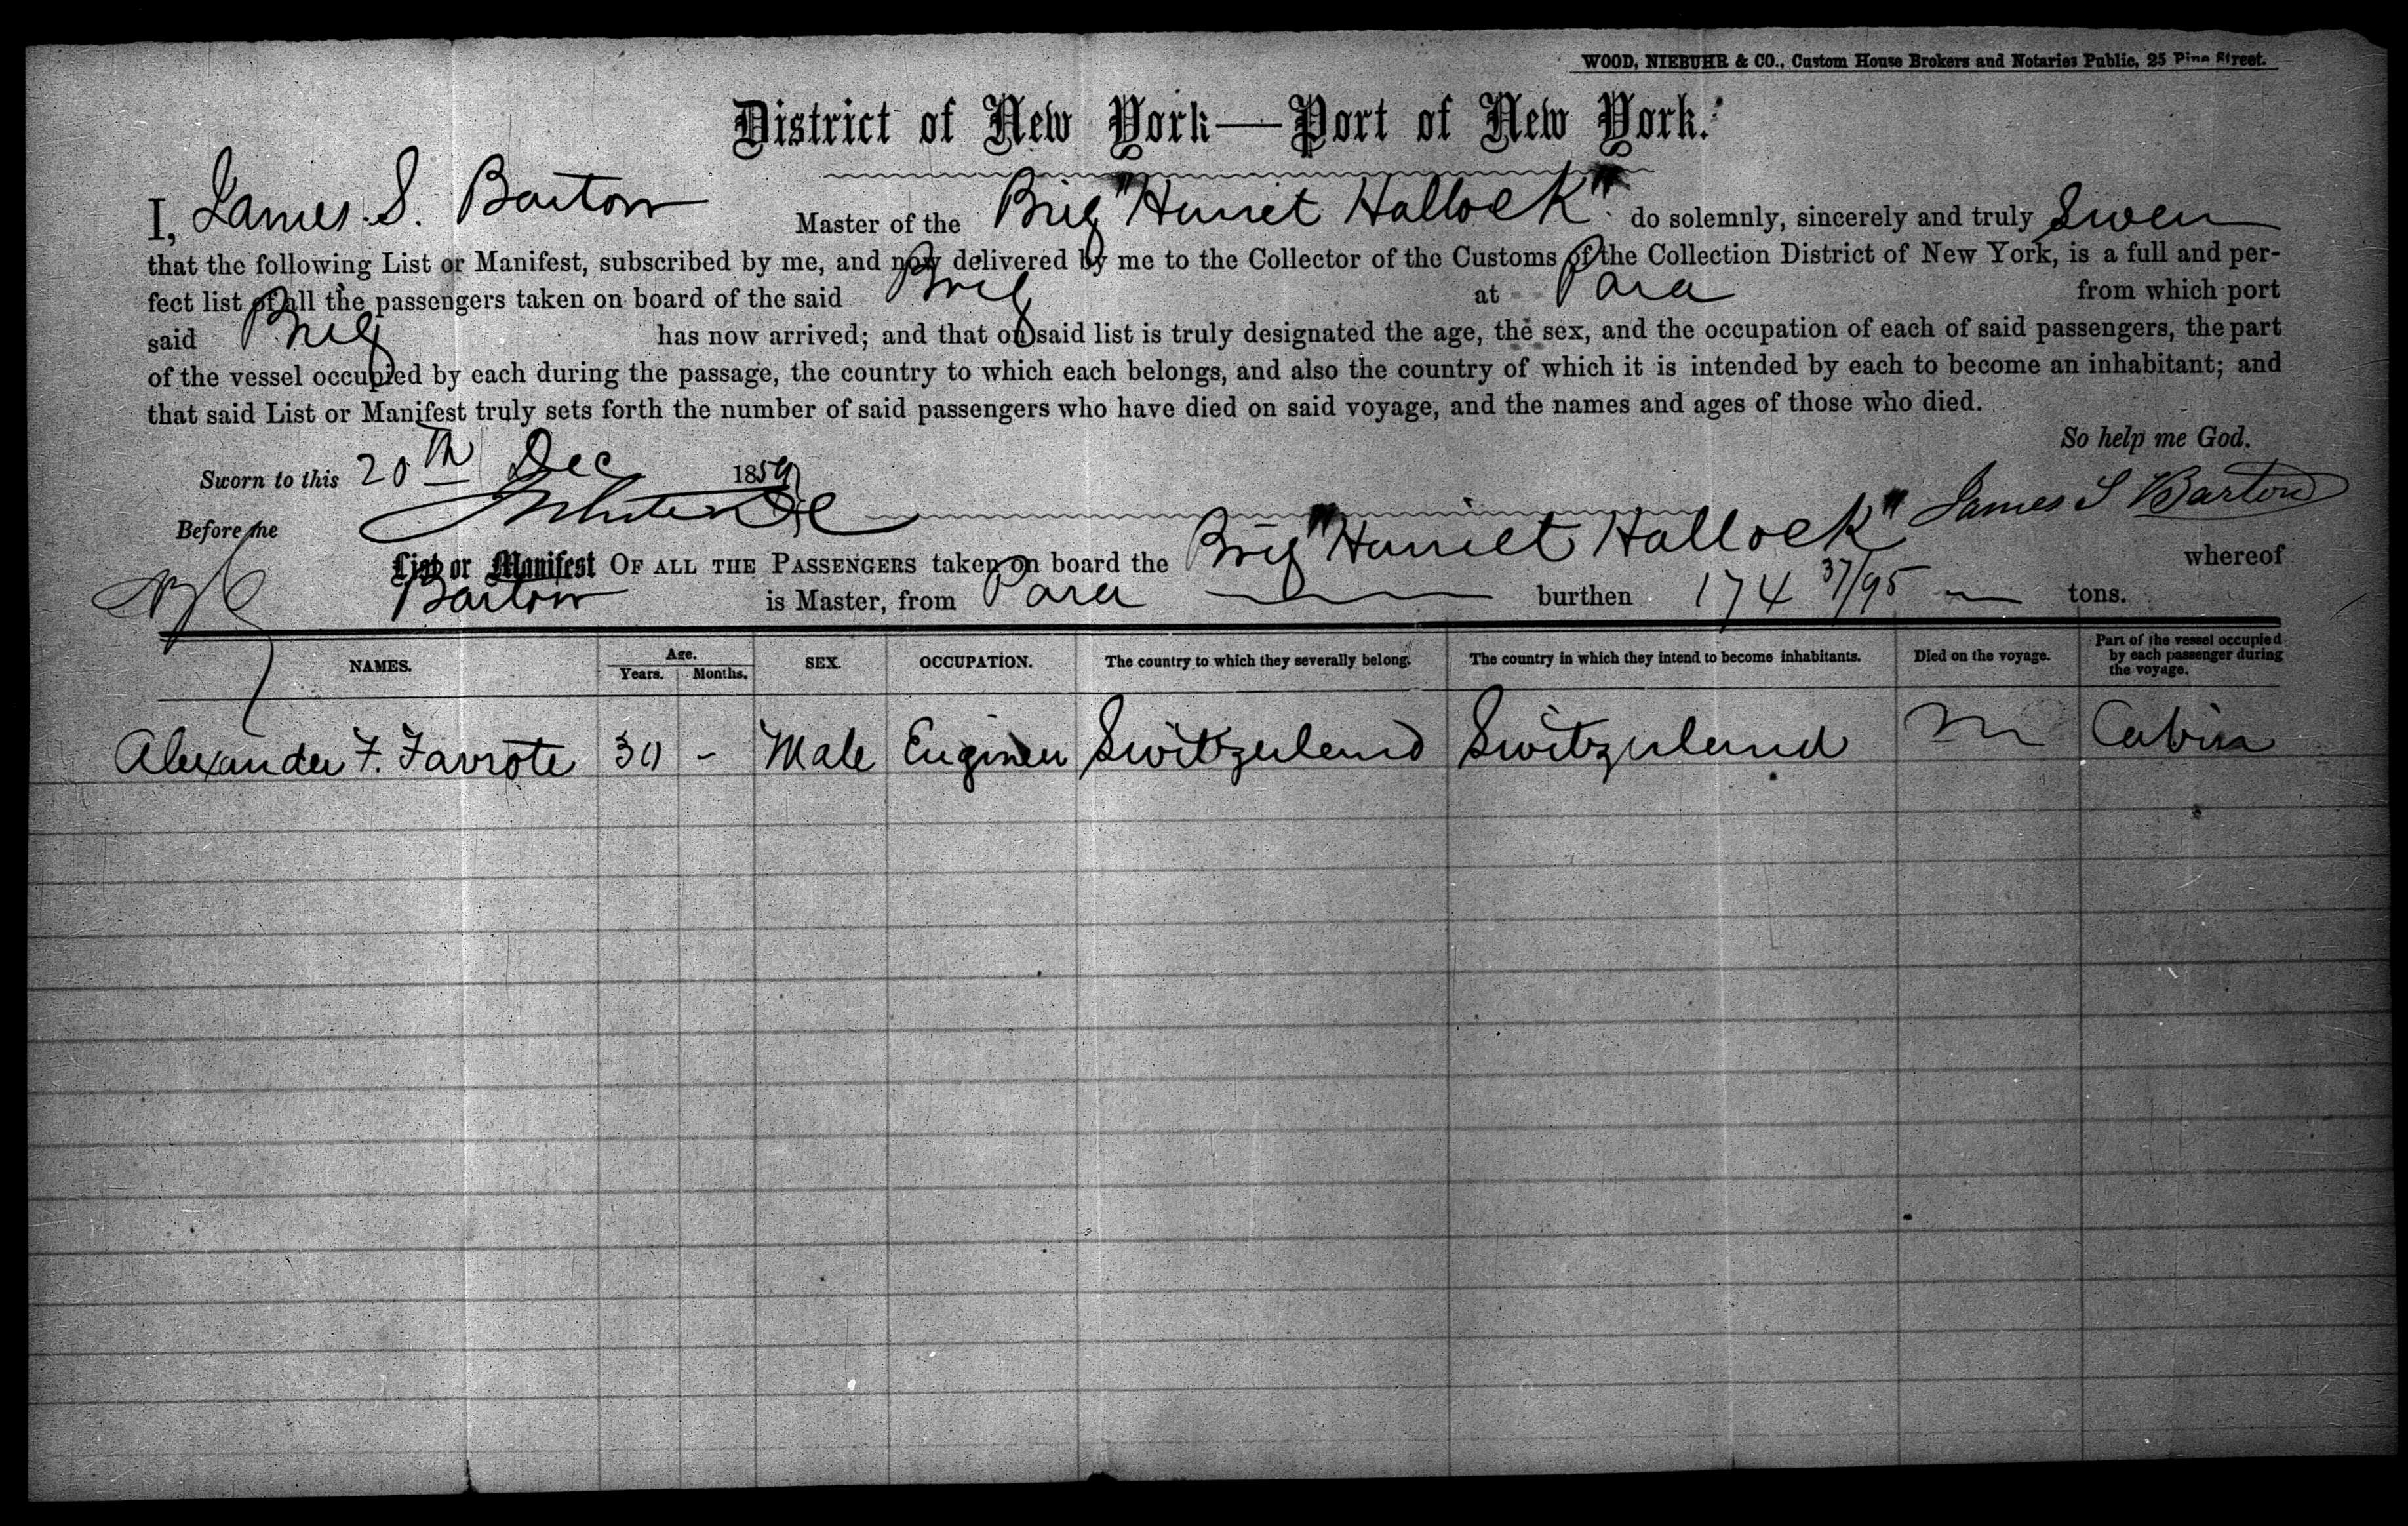 WOOD, NIEBUHR & CO., Custom House Brokers and Notaries Public, 25 Pine Street.
District of New York—Port of New York.
I, James S. Barton Master of the Brig "Harriet Hallock" do solemnly, sincerely and truly Swear
that the following List or Manifest, subscribed by me, and now delivered by me to the Collector of the Customs of the Collection District of New York, is a full and per-
fect list of all the passengers taken on board of the said Brig at Para from which port
said Brig has now arrived; and that on said list is truly designated the age, the sex, and the occupation of each of said passengers, the part
of the vessel occupied by each during the passage, the country to which each belongs, and also the country of which it is intended by each to become an inhabitant; and
that said List or Manifest truly sets forth the number of said passengers who have died on said voyage, and the names and ages of those who died.
So help me God.
Sworn to this 20th Dec 1859
James S Barton
Before me
List or Manifest OF ALL THE PASSENGERS taken on board the Brig "Harriet Hallock" whereof
Barton is Master, from Para burthen 174 37/95 tons.
NAMES. Age. Years. Months. SEX. OCCUPATION. The country to which they severally belong. The country in which they intend to become inhabitants. Died on the voyage. Part of the vessel occupied by each passenger during the voyage.
Alexander F. Favrote 30 - Male Engineer Switzerland Switzerland Cabin